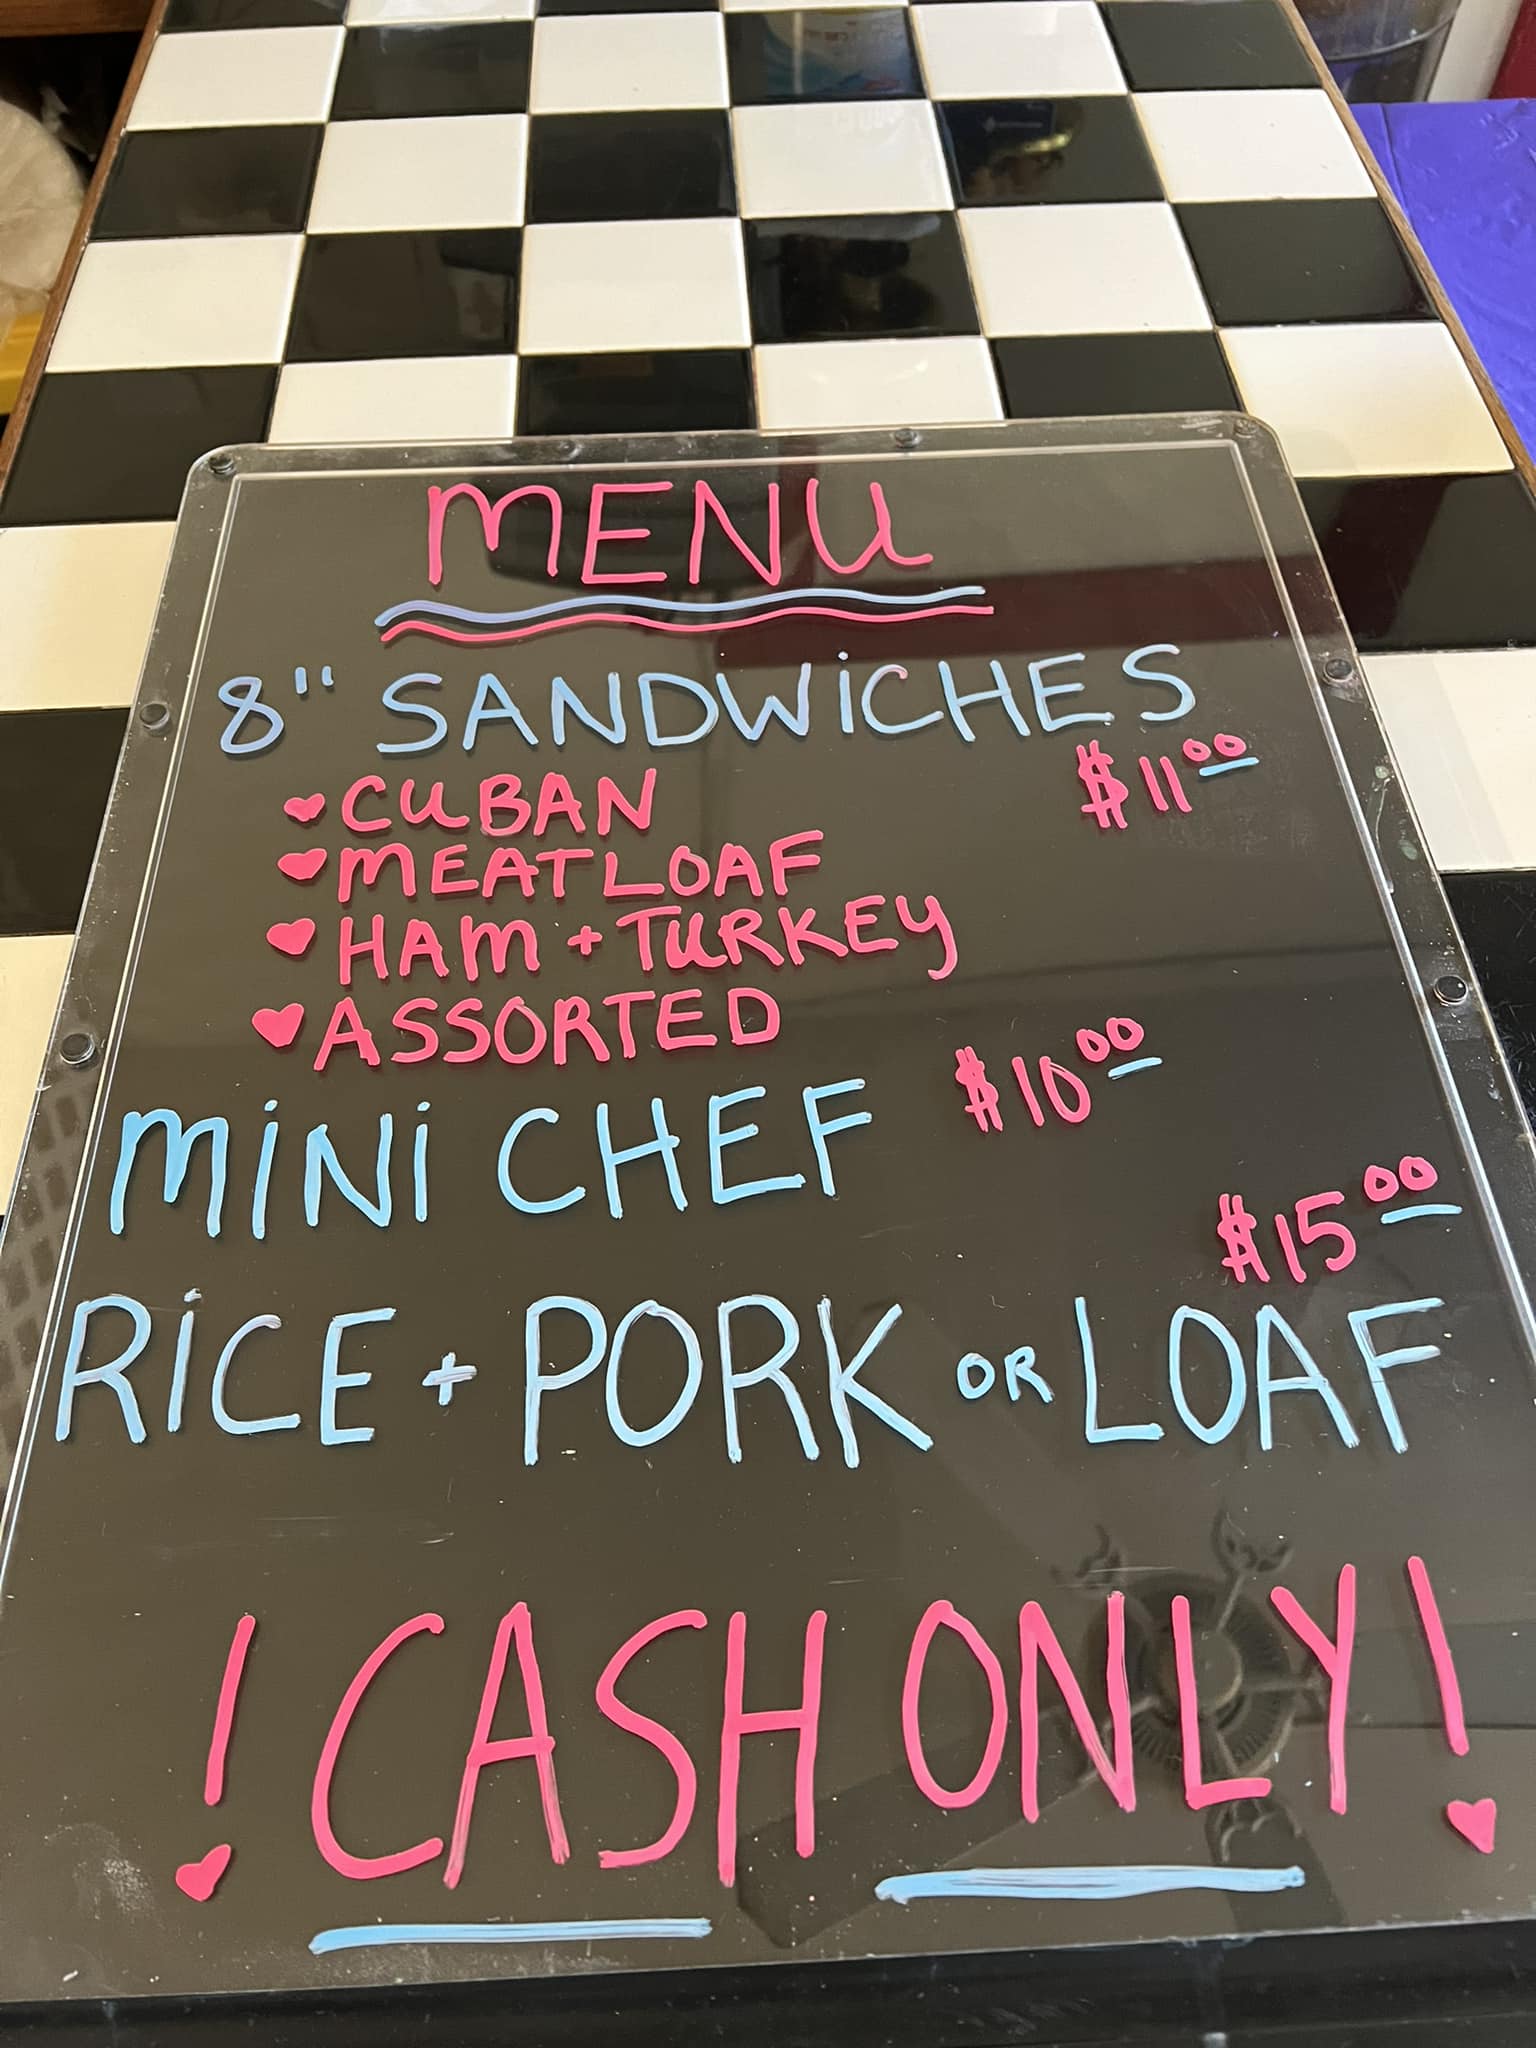 MENU
8" SANDWiCHES
♥ CUBAN $11.00
♥ MEATLOAF
♥ HAM + TURKEY
♥ ASSORTED
MiNi CHEF $10.00
$15.00
RiCE + PORK OR LOAF
! CASH ONLY!